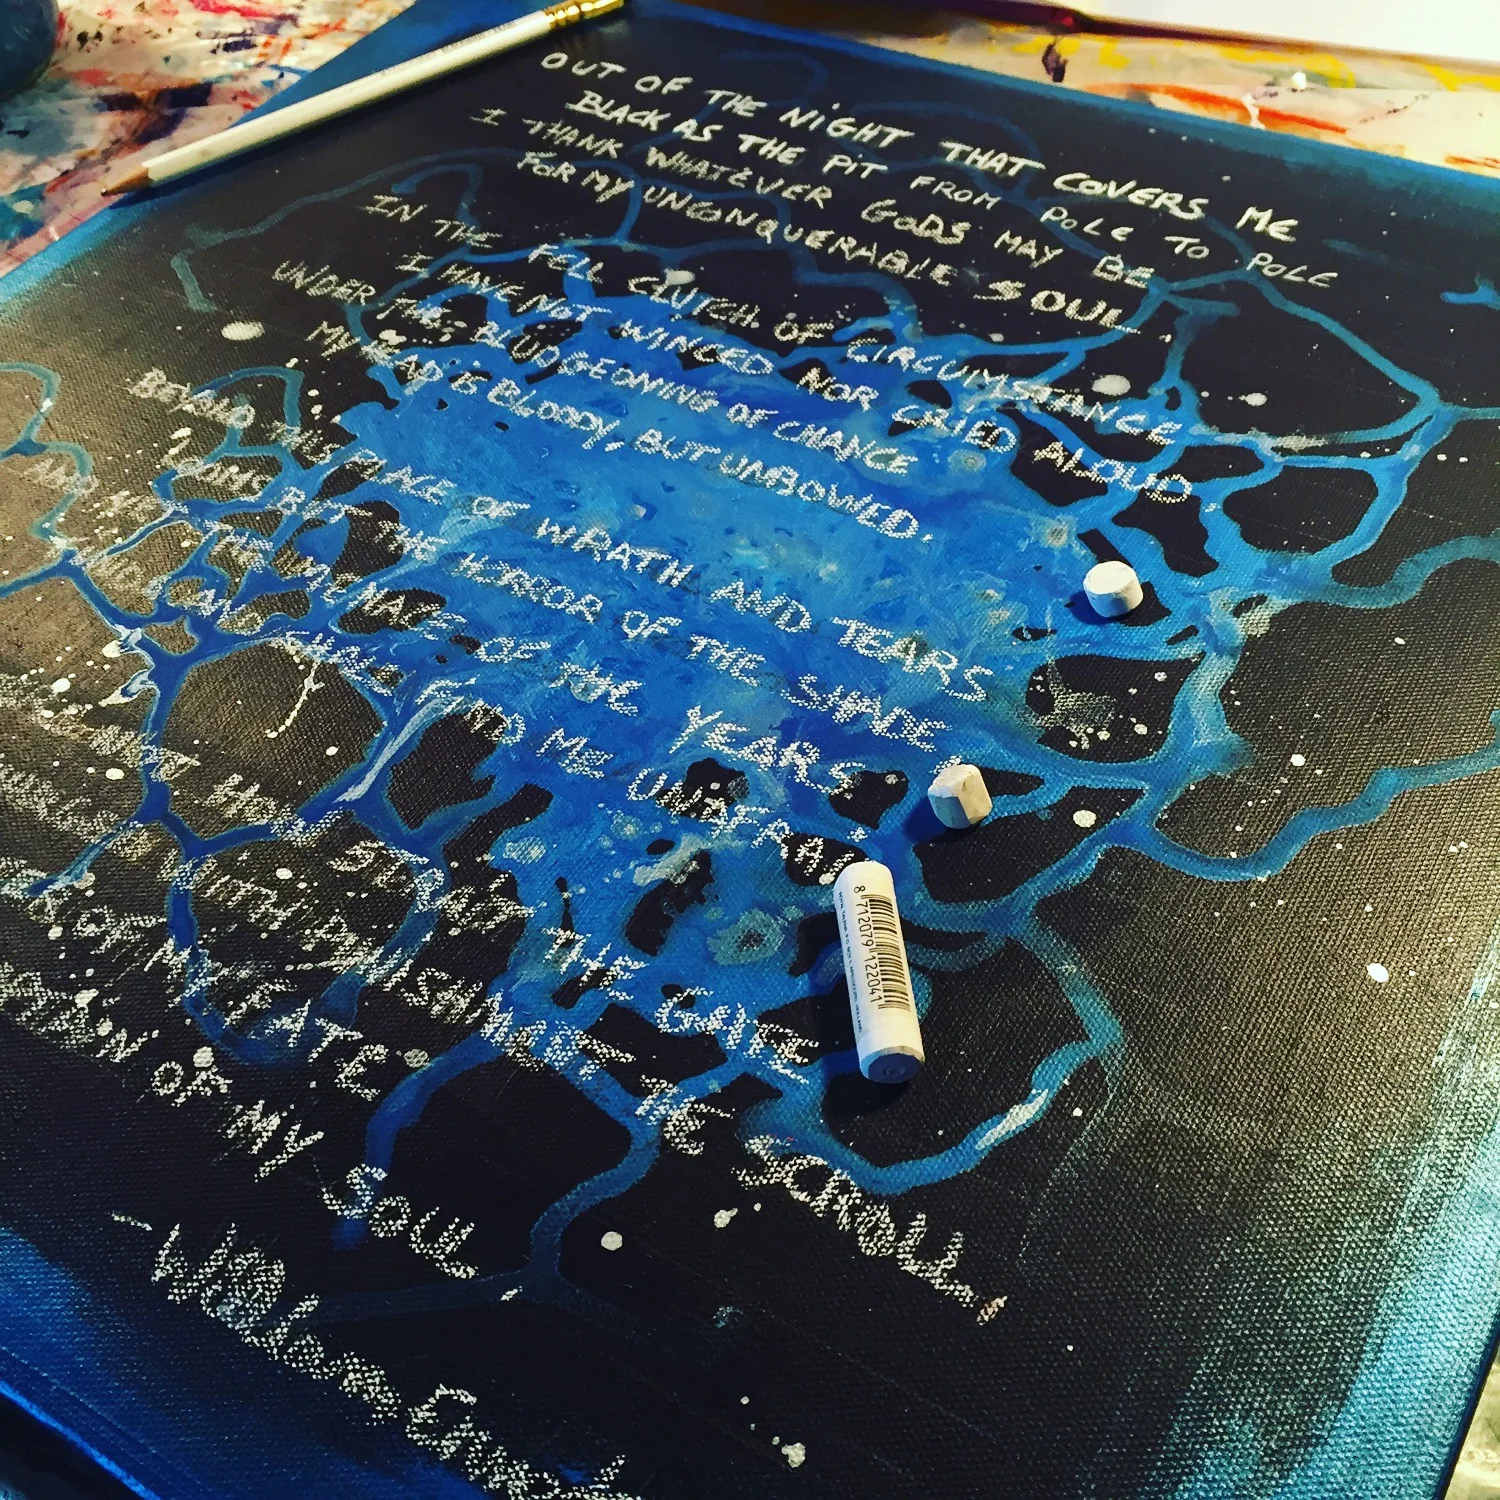 OUT OF THE NIGHT THAT COVERS ME
BLACK AS THE PIT FROM POLE TO POLE
I THANK WHATEVER GODS MAY BE
FOR MY UNCONQUERABLE SOUL
IN THE FELL CLUTCH OF CIRCUMSTANCE
I HAVE NOT WINCED NOR CRIED ALOUD
UNDER THE BLUDGEONING OF CHANCE
MY HEAD IS BLOODY, BUT UNBOWED.
BEYOND THIS PLACE OF WRATH AND TEARS
LOOMS BUT THE HORROR OF THE SHADE
AND YET THE MENACE OF THE YEARS
FINDS AND SHALL FIND ME UNAFRAID
NOT HOW STRAIT THE GATE
WITH PUNISHMENT THE SCROLL
OF MY FATE
OF MY SOUL
8 712079 122041